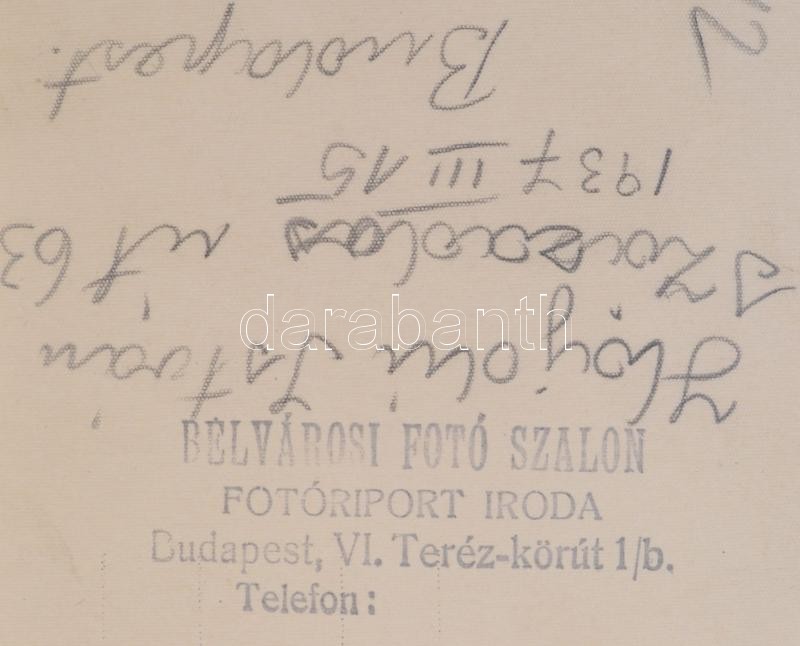 István
út 63
1937 III 15
Budapest.
darabanth
BELVÁROSI FOTÓ SZALON
FOTÓRIPORT IRODA
Budapest, VI. Teréz-körút 1/b.
Telefon: